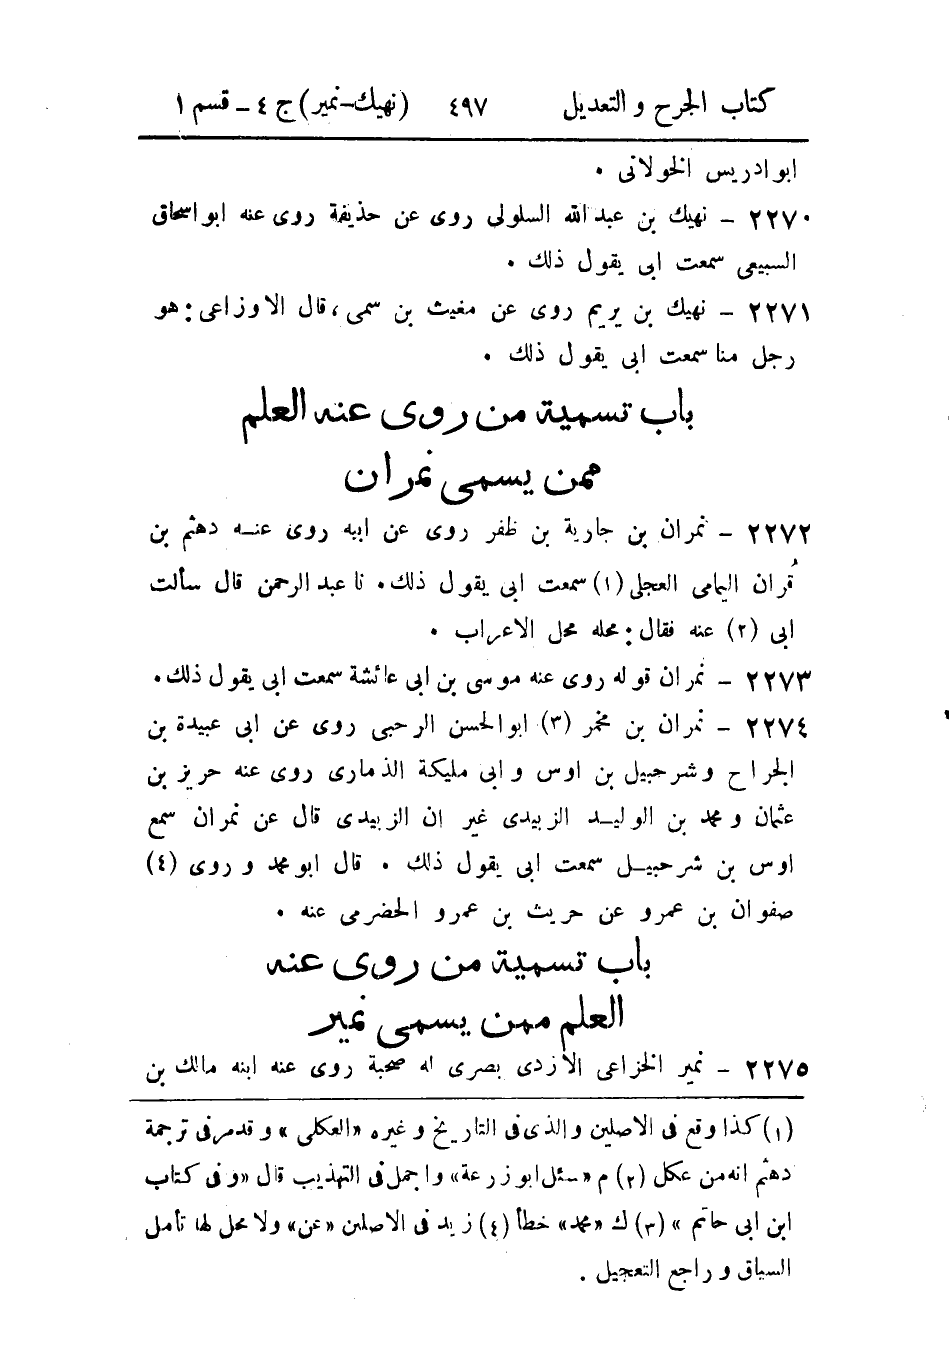 كتاب الجرح والتعديل ٤٩٧ (نهيك-نمير) ج ٤ - قسم ١
ابو ادريس الخولانى .
٢٢٧٠ - نهيك بن عبد الله السلولى روى عن حذيفة روى عنه ابو اسحاق
السبيعى سمعت ابى يقول ذلك .
٢٢٧١ - نهيك بن يريم روى عن مغيث بن سمى، قال الاوزاعى: هو
رجل منا سمعت ابى يقول ذلك .
باب تسمية من روى عنه العلم
ممن يسمى نمران
٢٢٧٢ - نمران بن جارية بن ظفر روى عن ابيه روى عنه دهثم بن
قُران اليمامى العجلى (١) سمعت ابى يقول ذلك. نا عبد الرحمن قال سألت
ابى (٢) عنه فقال: محله محل الاعراب .
٢٢٧٣ - نمران قوله روى عنه موسى بن ابى عائشة سمعت ابى يقول ذلك.
٢٢٧٤ - نمران بن مخمر (٣) ابو الحسن الرحبى روى عن ابى عبيدة بن
الجراح وشرحبيل بن اوس وابى مليكة الذمارى روى عنه حريز بن
عثمان ومحمد بن الوليد الزبيدى غير ان الزبيدى قال عن نمران سمع
اوس بن شرحبيل سمعت ابى يقول ذلك . قال ابو محمد وروى (٤)
صفوان بن عمرو عن حريث بن عمرو الحضرمى عنه .
باب تسمية من روى عنه
العلم ممن يسمى نمير
٢٢٧٥ - نمير الخزاعى الأزدى بصرى له صحبة روى عنه ابنه مالك بن
(١) كذا وقع فى الاصلين والذى فى التاريخ وغيره «العكلى» وقد مر فى ترجمة
دهثم انه من عكل (٢) م «سئل ابو زرعة» واجمل فى التهذيب قال «وفى كتاب
ابن ابى حاتم» (٣) ك «محمد» خطأ (٤) زيد فى الاصلين «عن» ولا محل لها تأمل
السياق وراجع التعجيل .